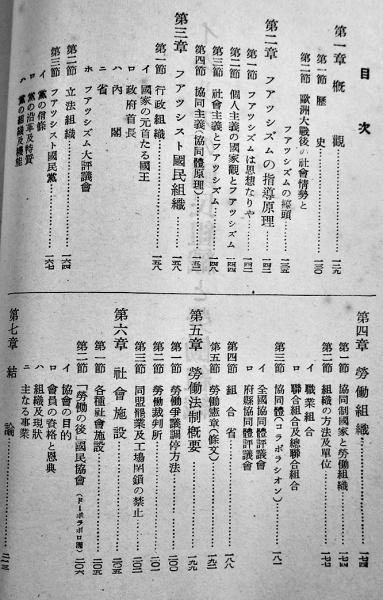 目次
第一章 概觀……一三九
第一節 歷史……一三〇
第二節 歐洲大戰後の社會情勢と
フアツシズムの擡頭……一三五
第二章 フアツシズムの指導原理……一四二
第一節 フアツシズムは思想なりや……一四二
第二節 個人主義の國家觀とフアツシズム……一四四
第三節 社會主義とフアツシズム……一四八
第四節 協同主義(協同體原理)……一五二
第三章 フアツシスト國民組織……一五八
第一節 行政組織……一五八
イ 國家の元首たる國王
ロ 政府首長
ハ 內閣
ニ 省
ホ フアツシズム大評議會
第二節 立法組織……一六四
第三節 フアツシスト國民黨……一六七
イ 黨の信條
ロ 黨の沿革及特質
ハ 黨の組織及機能
第四章 勞働組織……一七四
第一節 協同制國家と勞働組織……一七四
第二節 組織の方法及單位……一七七
イ 職業組合
ロ 聯合組合及總聯合組合
第三節 協同體(コラポラシオン)……一八一
イ 全國協同體評議會
ロ 府縣協同體評議會
第四節 組合省……一八八
第五節 勞働憲章(條文)……一九二
第五章 勞働法制概要……一九九
第一節 勞働爭議調停方法……二〇〇
第二節 勞働裁判所……二〇一
第三節 同盟罷業及工場閉鎖の禁止……二〇三
第六章 社會施設……二〇五
第一節 各種社會施設……二〇五
第二節 「勞働の後」國民協會(ドーポラボロ團)……二〇六
イ 協會の目的
ロ 會員の資格と恩典
ハ 組織及現狀
ニ 主なる事業
第七章 結論……二一三